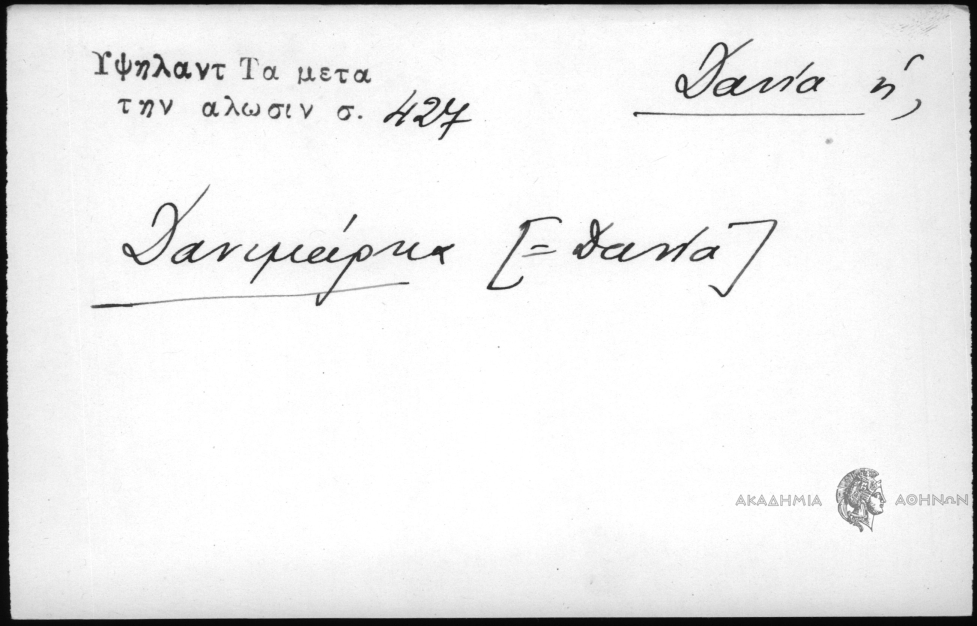 Υψηλαντ Τα μετα
την αλωσιν σ. 427
Δανία ἡ,
Δανιμάρκα [= Δανία]
ΑΚΑΔΗΜΙΑ ΑΘΗΝΩΝ